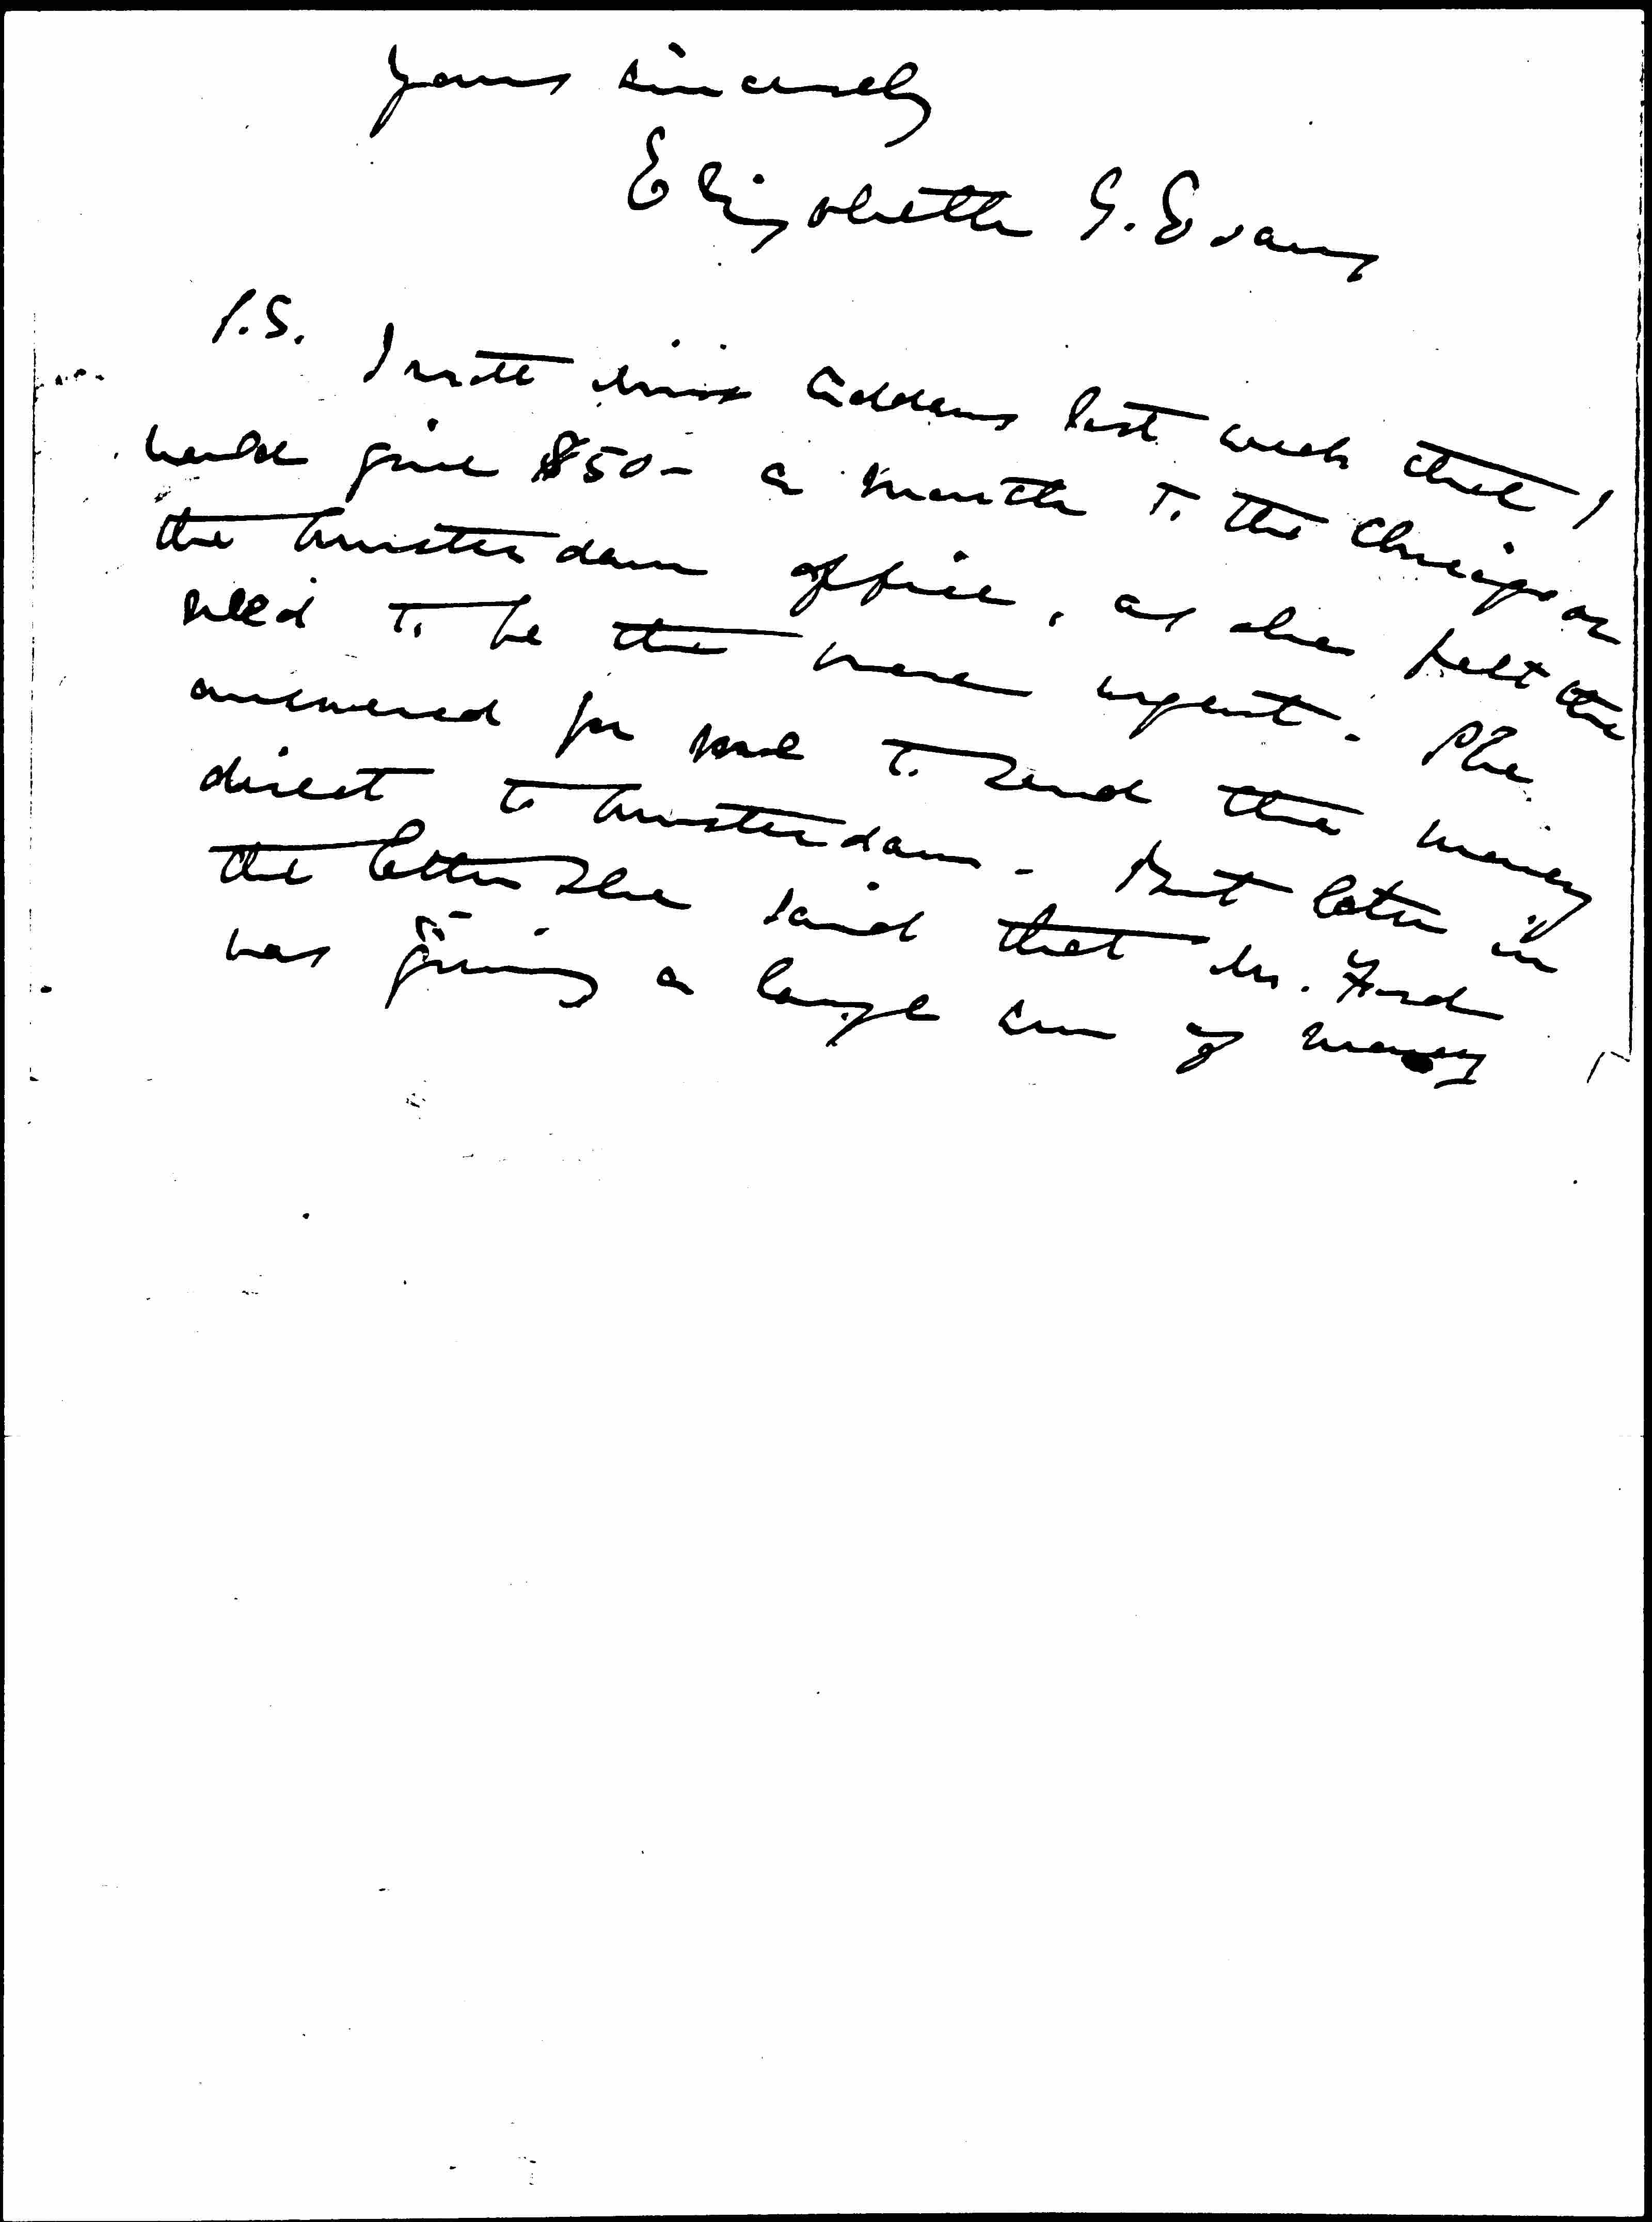 Yours sincerely
Elizabeth G. Evans
P.S. I wrote Miss Addams last week that I
would give $50- a month to the Chicago or
the Amsterdam office, as she felt the
need to be the more urgent. She
answered for me to send the money
direct to Amsterdam. But later in
the letter she said that Mr. Ford
was giving a large sum of money